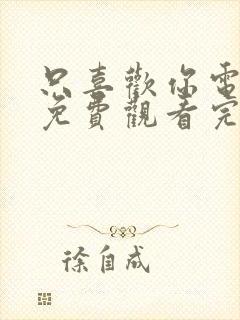 只喜歡你電
免費觀看完
徐自成